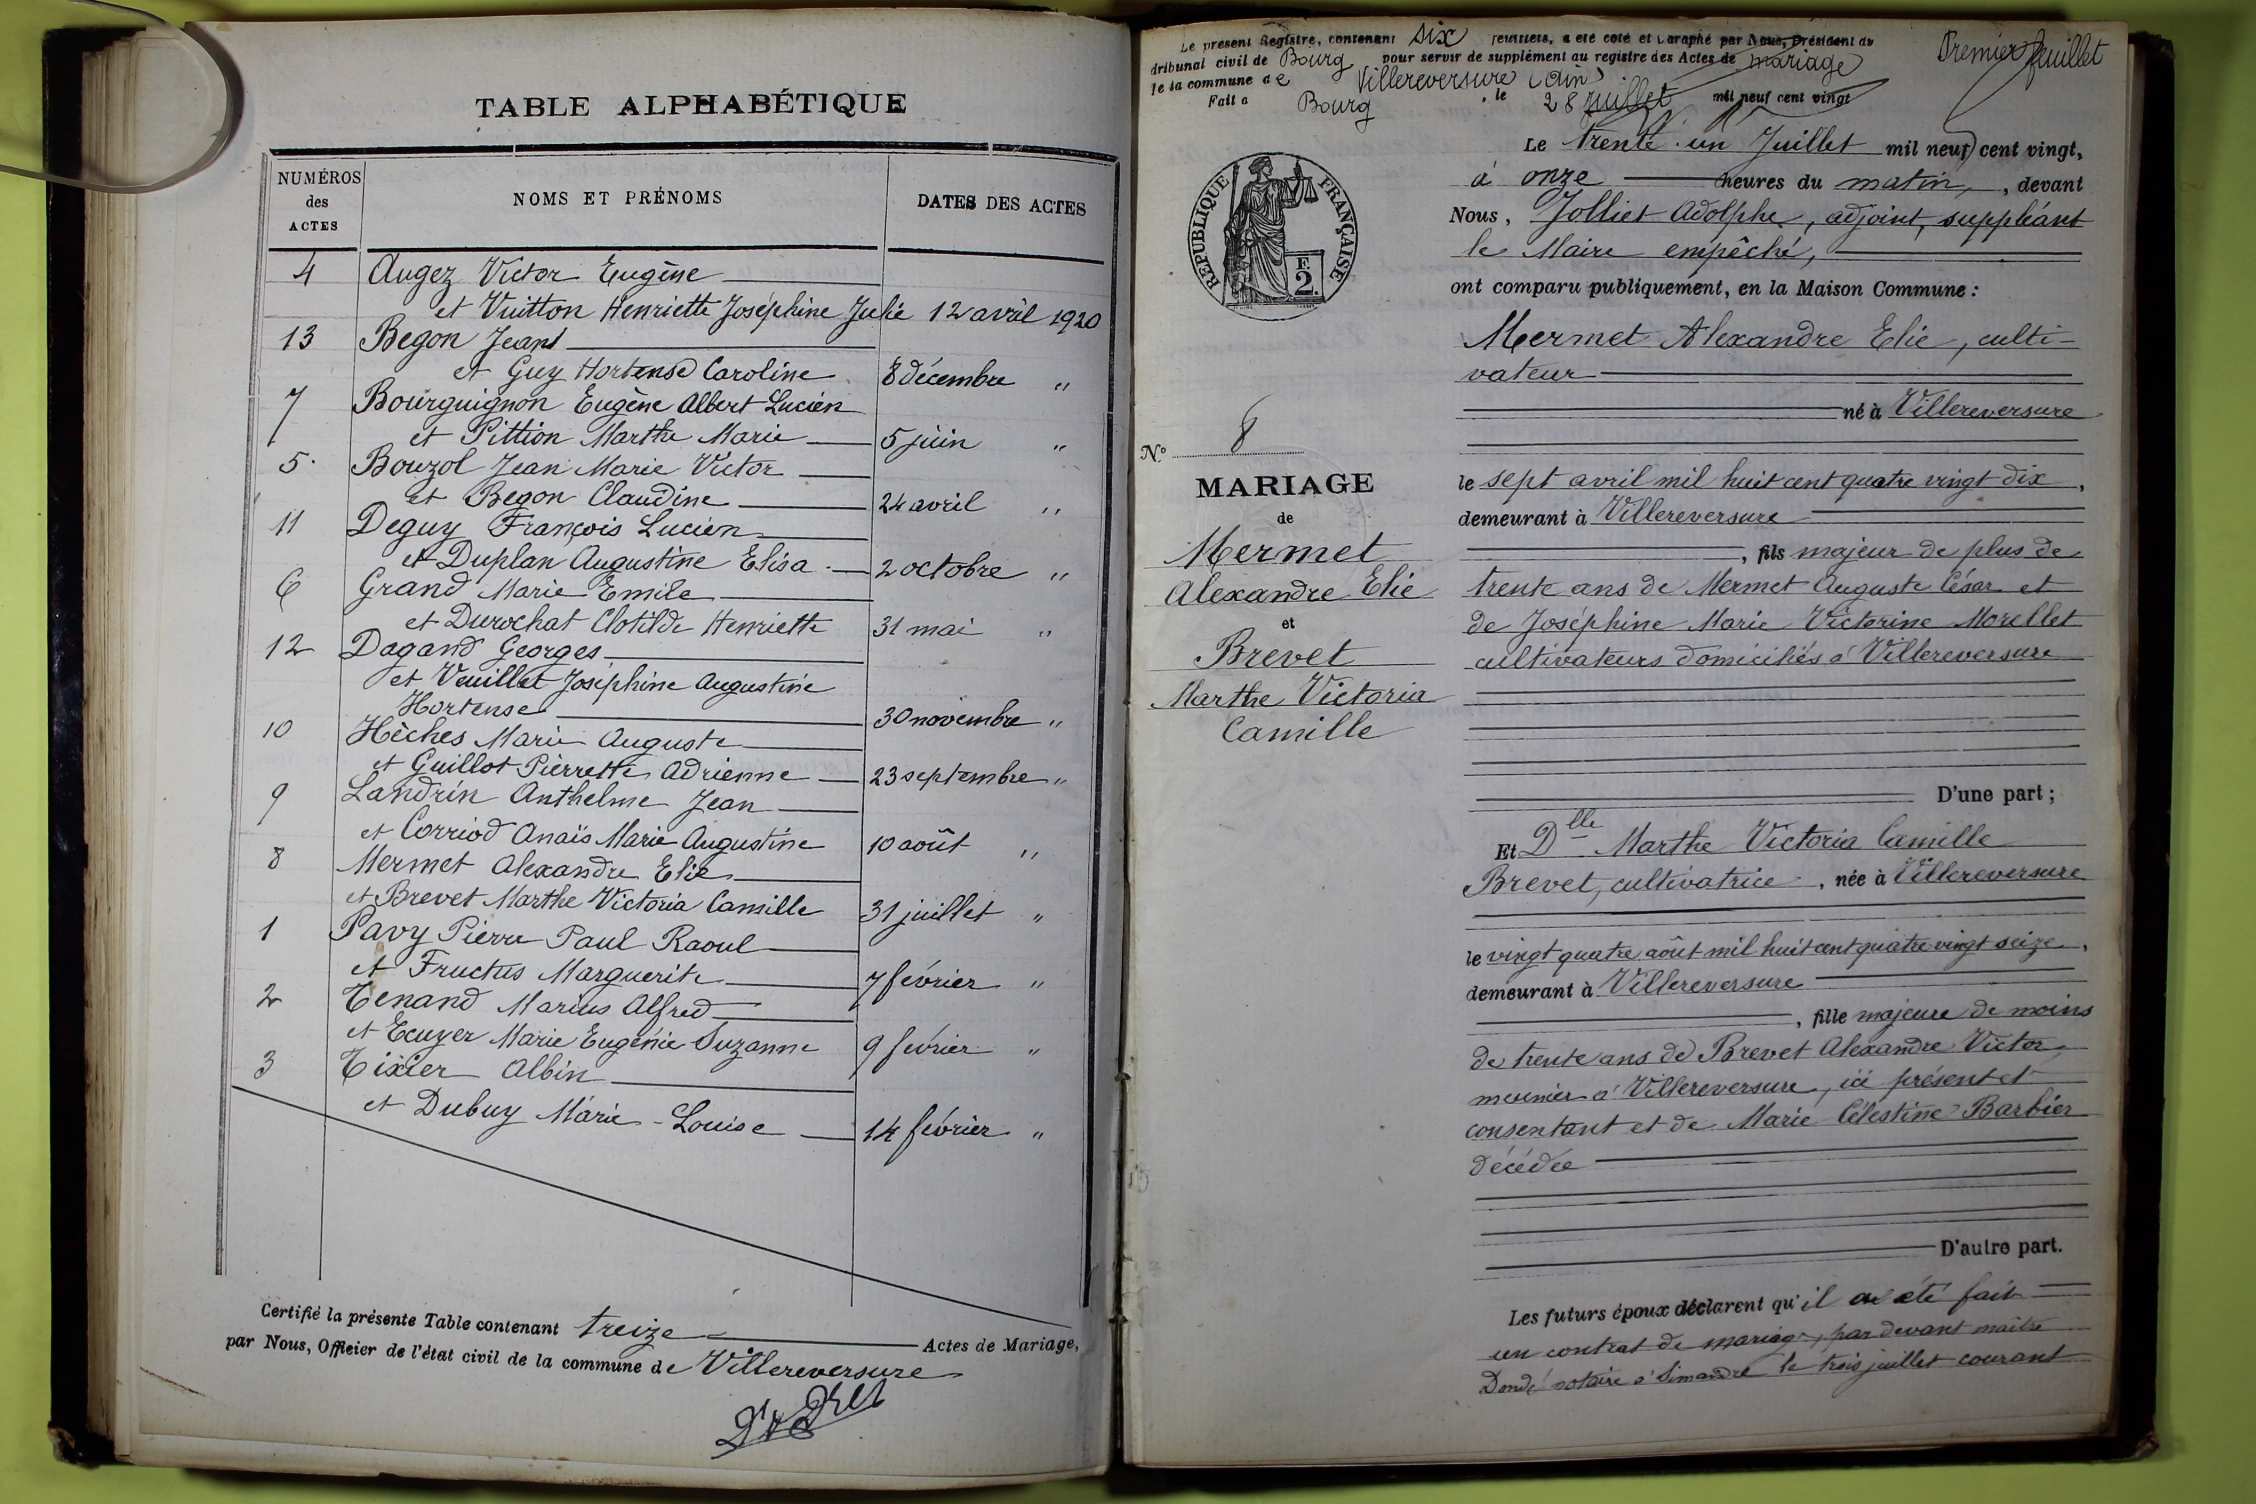 TABLE ALPHABÉTIQUE
NUMÉROS des ACTES
NOMS ET PRÉNOMS
DATES DES ACTES
4 Augez Victor Eugène
et Vuitton Henriette Joséphine Julie 12 avril 1920
13 Begon Jean
et Guy Hortense Caroline 8 décembre "
7 Bourguignon Eugène Albert Lucien
et Pittion Marthe Marie 5 juin "
5 Bouzol Jean Marie Victor
et Begon Claudine 24 avril "
11 Deguy François Lucien
et Duplan Augustine Elisa 2 octobre "
6 Grand Marie Emile
et Durochat Clotilde Henriette 31 mai "
12 Dagand Georges
et Veuillet Joséphine Augustine
Hortense 30 novembre "
10 Hèches Marie Auguste
et Guillot Pierrette Adrienne 23 septembre "
9 Landrin Anthelme Jean
et Corriod Anaïs Marie Augustine 10 août "
8 Mermet Alexandre Elie
et Brevet Marthe Victoria Camille 31 juillet "
1 Pavy Pierre Paul Raoul
et Fructus Marguerite 7 février "
2 Tenand Marius Alfred
et Ecuyer Marie Eugénie Suzanne 9 février "
3 Tixier Albin
et Dubuy Marie-Louise 14 février "
Certifié la présente Table contenant treize Actes de Mariage,
par Nous, Officier de l'état civil de la commune de Villereversure
Le présent Registre, contenant six feuillets, a été coté et paraphé par Nous, Président du
tribunal civil de Bourg pour servir de supplément au registre des Actes de mariage
de la commune de Villereversure (Ain)
Fait a Bourg, le 28 juillet mil neuf cent vingt
Premier feuillet
RÉPUBLIQUE FRANÇAISE
F.
2.
N.º 8
MARIAGE
de
Mermet
Alexandre Elie
et
Brevet
Marthe Victoria
Camille
Le trente-un Juillet mil neuf cent vingt,
à onze heures du matin, devant
Nous, Jolliet Adolphe, adjoint, suppléant
le Maire empêché,
ont comparu publiquement, en la Maison Commune :
Mermet Alexandre Elie, culti-
vateur
né à Villereversure
le sept avril mil huit cent quatre vingt dix,
demeurant à Villereversure
, fils majeur de plus de
trente ans de Mermet Auguste César et
de Joséphine Marie Victorine Morellet
cultivateurs domiciliés à Villereversure
D'une part ;
Et Dlle Marthe Victoria Camille
Brevet, cultivatrice, née à Villereversure
le vingt quatre août mil huit cent quatre vingt seize,
demeurant à Villereversure
, fille majeure de moins
de trente ans de Brevet Alexandre Victor
meunier à Villereversure, ici présent et
consentant et de Marie Célestine Barbier
décédée
D'autre part.
Les futurs époux déclarent qu'il a été fait
un contrat de mariage, par devant maître
Dondé notaire à Simandre le trois juillet courant